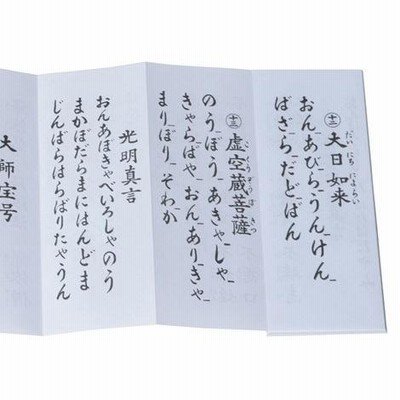 十二 大日如来
だいにちにょらい
おんあびらうんけん
ばざらだどばん
十三 虚空蔵菩薩
こくうぞうぼさつ
のうぼうあきゃしゃ
きゃらばやおんありきゃ
まりぼりそわか
光明真言
おんあぼきゃべいろしゃのう
まかぼだらまにはんどま
じんばらはらばりたやうん
大師宝号